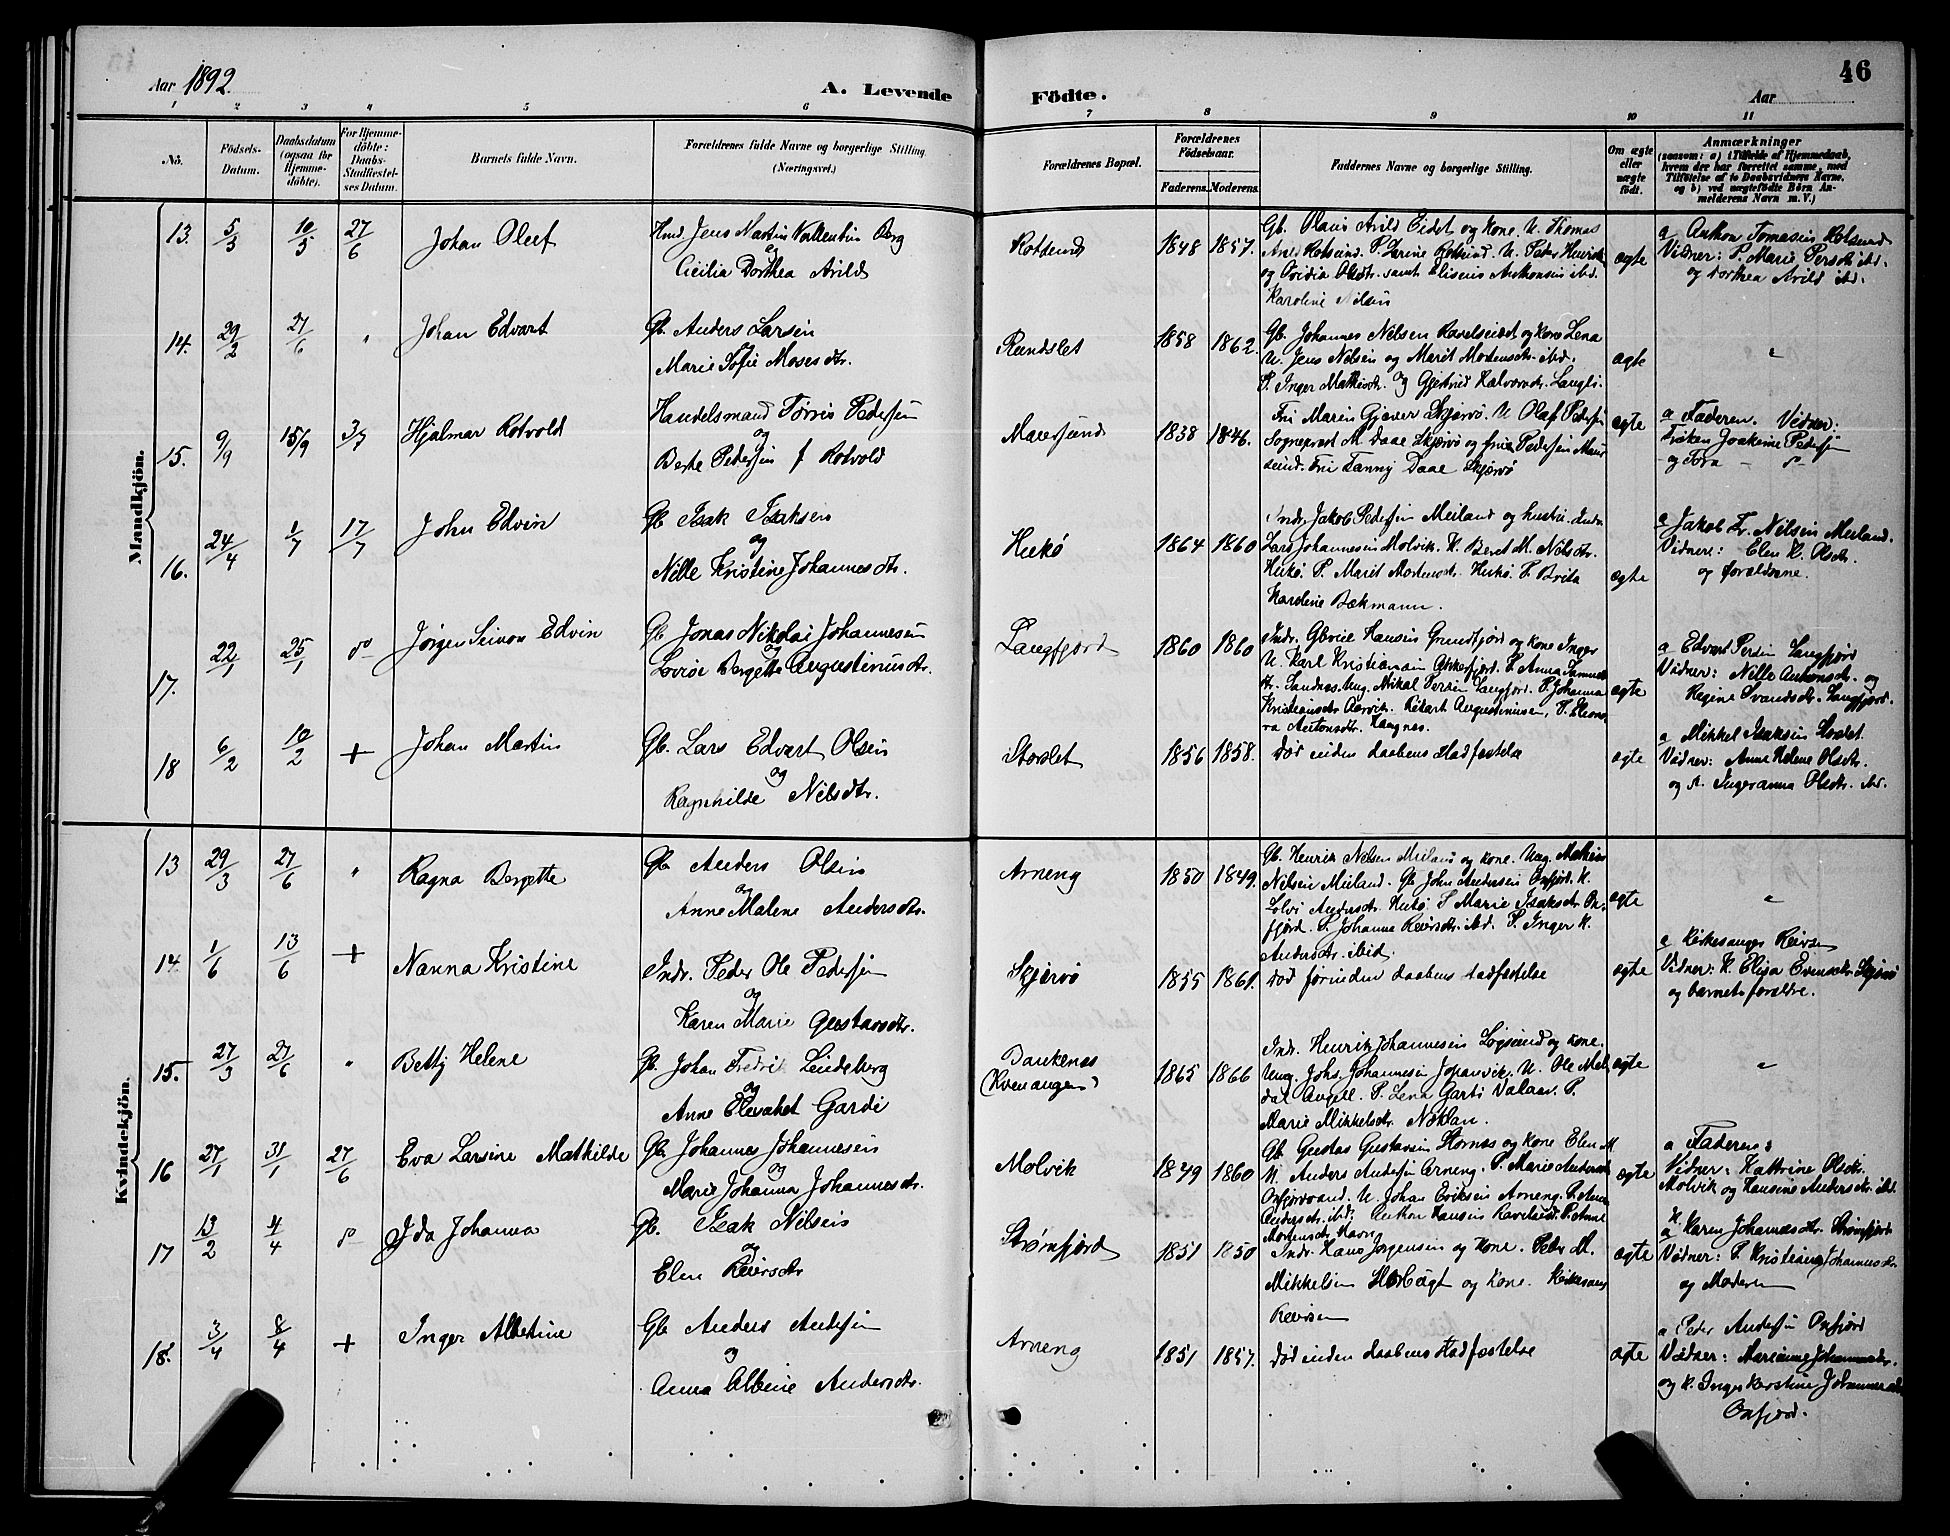 46
Aar 1892.
A. Levende Födte.
Aar
1 2 3 4 5 6 7 8 9 10 11
No.
Födsels-Datum.
Daabsdatum (ogsaa for Hjemme-döbte).
For Hjemme-döbte: Daabs-Stadfæstel-ses Datum.
Barnets fulde Navn.
Forældrenes fulde Navne og borgerlige Stilling. (Næringsvei.)
Forældrenes Bopæl.
Forældrenes Födselsaar.
Faderens. Moderens.
Faddernes Navne og borgerlige Stilling.
Om ægte eller uægte födt.
Anmærkninger
(saasom: a) i Tilfælde af Hjemmedaab,
hvem der har forrettet samme, med
Tilföielse af to Daabsvidners Navne,
og b) ved uægtefödte Börn An-
melderens Navn m. V.)
Mandkjön.
13. 5/3 10/5 27/6 Johan Oluf
Hmd. Jens Martin Vallentin Berg
og
Cecilia Dorthea Arild
Rotsund 1848 1857.
Gb. Olaus Arild Eidet og kone. U. Thomas
Arild Rotsund. P. Larine Rotsund. U. Peder Henrik
og Ovidia Olsdtr. samt Eliseus Antonsen ibd.
Karoline Nilsen
ægte
a Anthon Tomasen Rotsund
Vidner: P. Marie Persdtr ibd.
og Dorthea Arild ibd.
14. 29/2 27/6 " Johan Edvart
Gb. Anders Larsen
og
Marie Sofie Mosesdtr.
Rundslet 1858 1862.
Gb. Johannes Nilsen Ravelseidet og kone Lena
U. Jens Nilsen og Marit Mortensdtr. ibd.
P. Inger Mathisdtr. og Gjertrud Halvorsdtr. Langsl.
ægte "
15. 9/9 15/9 3/7 Hjalmar Rotvold
Handelsmand Törris Pedersen
og
Berte Pedersen f Rotvold
Maursund 1838 1846.
Fru Maren Gjæver Skjervö. U Olaf Pedersen
Sogneprest M. Daae Skjervö og frue Pedersen Maur
sund. Fru Fanny Daae Skjervö
ægte
a Faderen. Vidner:
Fröken Joakime Pedersen
- og Tora - do -
16. 24/4 1/7 17/7 John Edvin
Gb Isak Isaksen
og
Nille Kristine Johannesdtr.
Hukö 1864 1860
Indr. Jakob Pedersen Meiland og hustru. Indr.
Lars Johannesen Molvik. K. Beret M. Nilsdtr.
Hukö. P. Marit Mortensdtr. Hukö. P. Brita
Karoline Bækmann.
ægte
a Jakob Fr. Nilsen Meiland.
Vidner: Elen K. Olsdtr.
og forældrene.
17. 22/1 25/1 do Jørgen Simon Edvin
Gb Jonas Nikolai Johannesen
og
Lovise Bergette Augustinusdtr.
Langfjord 1860 1860
Indr. Gbruer Hansen Grundfjord og kone Inger
U. Karl Kristiansen Akkarfjord. P. Anna Samuels
dtr. Sandnes. Ung. Mikal Persen Langfjord. P. Johanna
Kristiansdtr Aarvik. Rikart Augustinusen. P. Eleono
ra Antonsdtr. Haugnæs.
ægte
a Edvart Persen Langfjord
Vidner: Nille Antonsdtr. og
Regine Svendsdtr. Langfjord.
18 6/2 10/2 + Johan Martin
Gb. Lars Edvart Olsen
og
Ragnhilde Nilsdtr.
Storslet 1856 1858.
död inden daabens stadfæstelse
ægte
a Mikkel Isaksen Storslet.
Vidner: Anne Helene Olsdtr.
og P. Ingeranna Olsdtr. ibd.
Kvindekjön.
13 29/3 27/6 " Ragna Bergette
Gb Anders Olsen
og
Anne Malene Andersdtr.
Arneng 1850 1849.
Gb. Henrik Nilsen Meiland og kone. Ung. Mathis
Nilsen Meiland. Gb John Andersen Oxfjord. K.
Lovi Andersdtr. Hukö P Marie Isaksdtr. Ox-
fjord. P. Johanna Reiersdtr. ibd. P. Inger K.
Andersdtr. ibid.
ægte "
14 1/6 13/6 + Nanna Kristine
Indr. Peder Ole Pedersen
og
Karen Marie Gustavsdtr.
Skjervö 1855 1861.
död förinden daabens stadfæstelse
ægte
a Kirkesanger Reiersen
Vidner: K. Elisa Evensdtr. Skjervö
og barnets forældre.
15. 27/3 27/6 " Betty Helene
Gb. Johan Fredrik Lindeberg
og
Anne Elevahet Garde
Baukenæs
(Kvenangen) 1865 1866
Indr. Henrik Johannesen Lögsund og kone.
Ung. Johs. Johannesen Jopavik. U. Ole Mel
dal Angell. P. Lena Garte Valaar. P.
Marie Mikkelsdtr. Noklan.
ægte "
16 27/1 31/1 27/6 Eva Larsine Mathilde
Gb Johannes Johannesen
og
Marie Johanna Johannesdtr.
Molvik 1849 1860
Gb. Gustav Gustavsen Stornæs og kone Elen M
U. Anders Andersen Arneng. P. Marie Andersdtr
Oxfjordvand. U. Johan Eriksen Arneng. P. Anna
Andersdtr. ibid. Anthon Hansen Ravelseidet. P. Anne
Mortensdtr. Havn
ægte
a Faderen;
Vidner: Kathrine Olsdtr.
Molvik og Hansine Andersdtr. ibd.
17 13/2 4/4 do Ida Johanna
Gb. Isak Nilsen
og
Elen Reiersdtr
Strömfjord 1851 1850
Indr. Hans Jørgensen og kone. Peder M.
Mikkelsen Storbugt og kone. Kirkesang
Reiersen
ægte
K.
a Karen Johannesdtr. Strömfjord
Vidner: P. Kristiane Johannesdtr
og Moderen
18. 3/4 8/4 + Inger Albertine
Gb Anders Andersen
og
Anna Albine Andersdtr.
Arneng 1851 1857.
död inden daabens stadfæstelse
ægte
a Peder Andersen Oxfjord
Vidner: Marianne Johannesdtr.
og K. Inger Kerstine Johannesdtr.
Oxfjord.